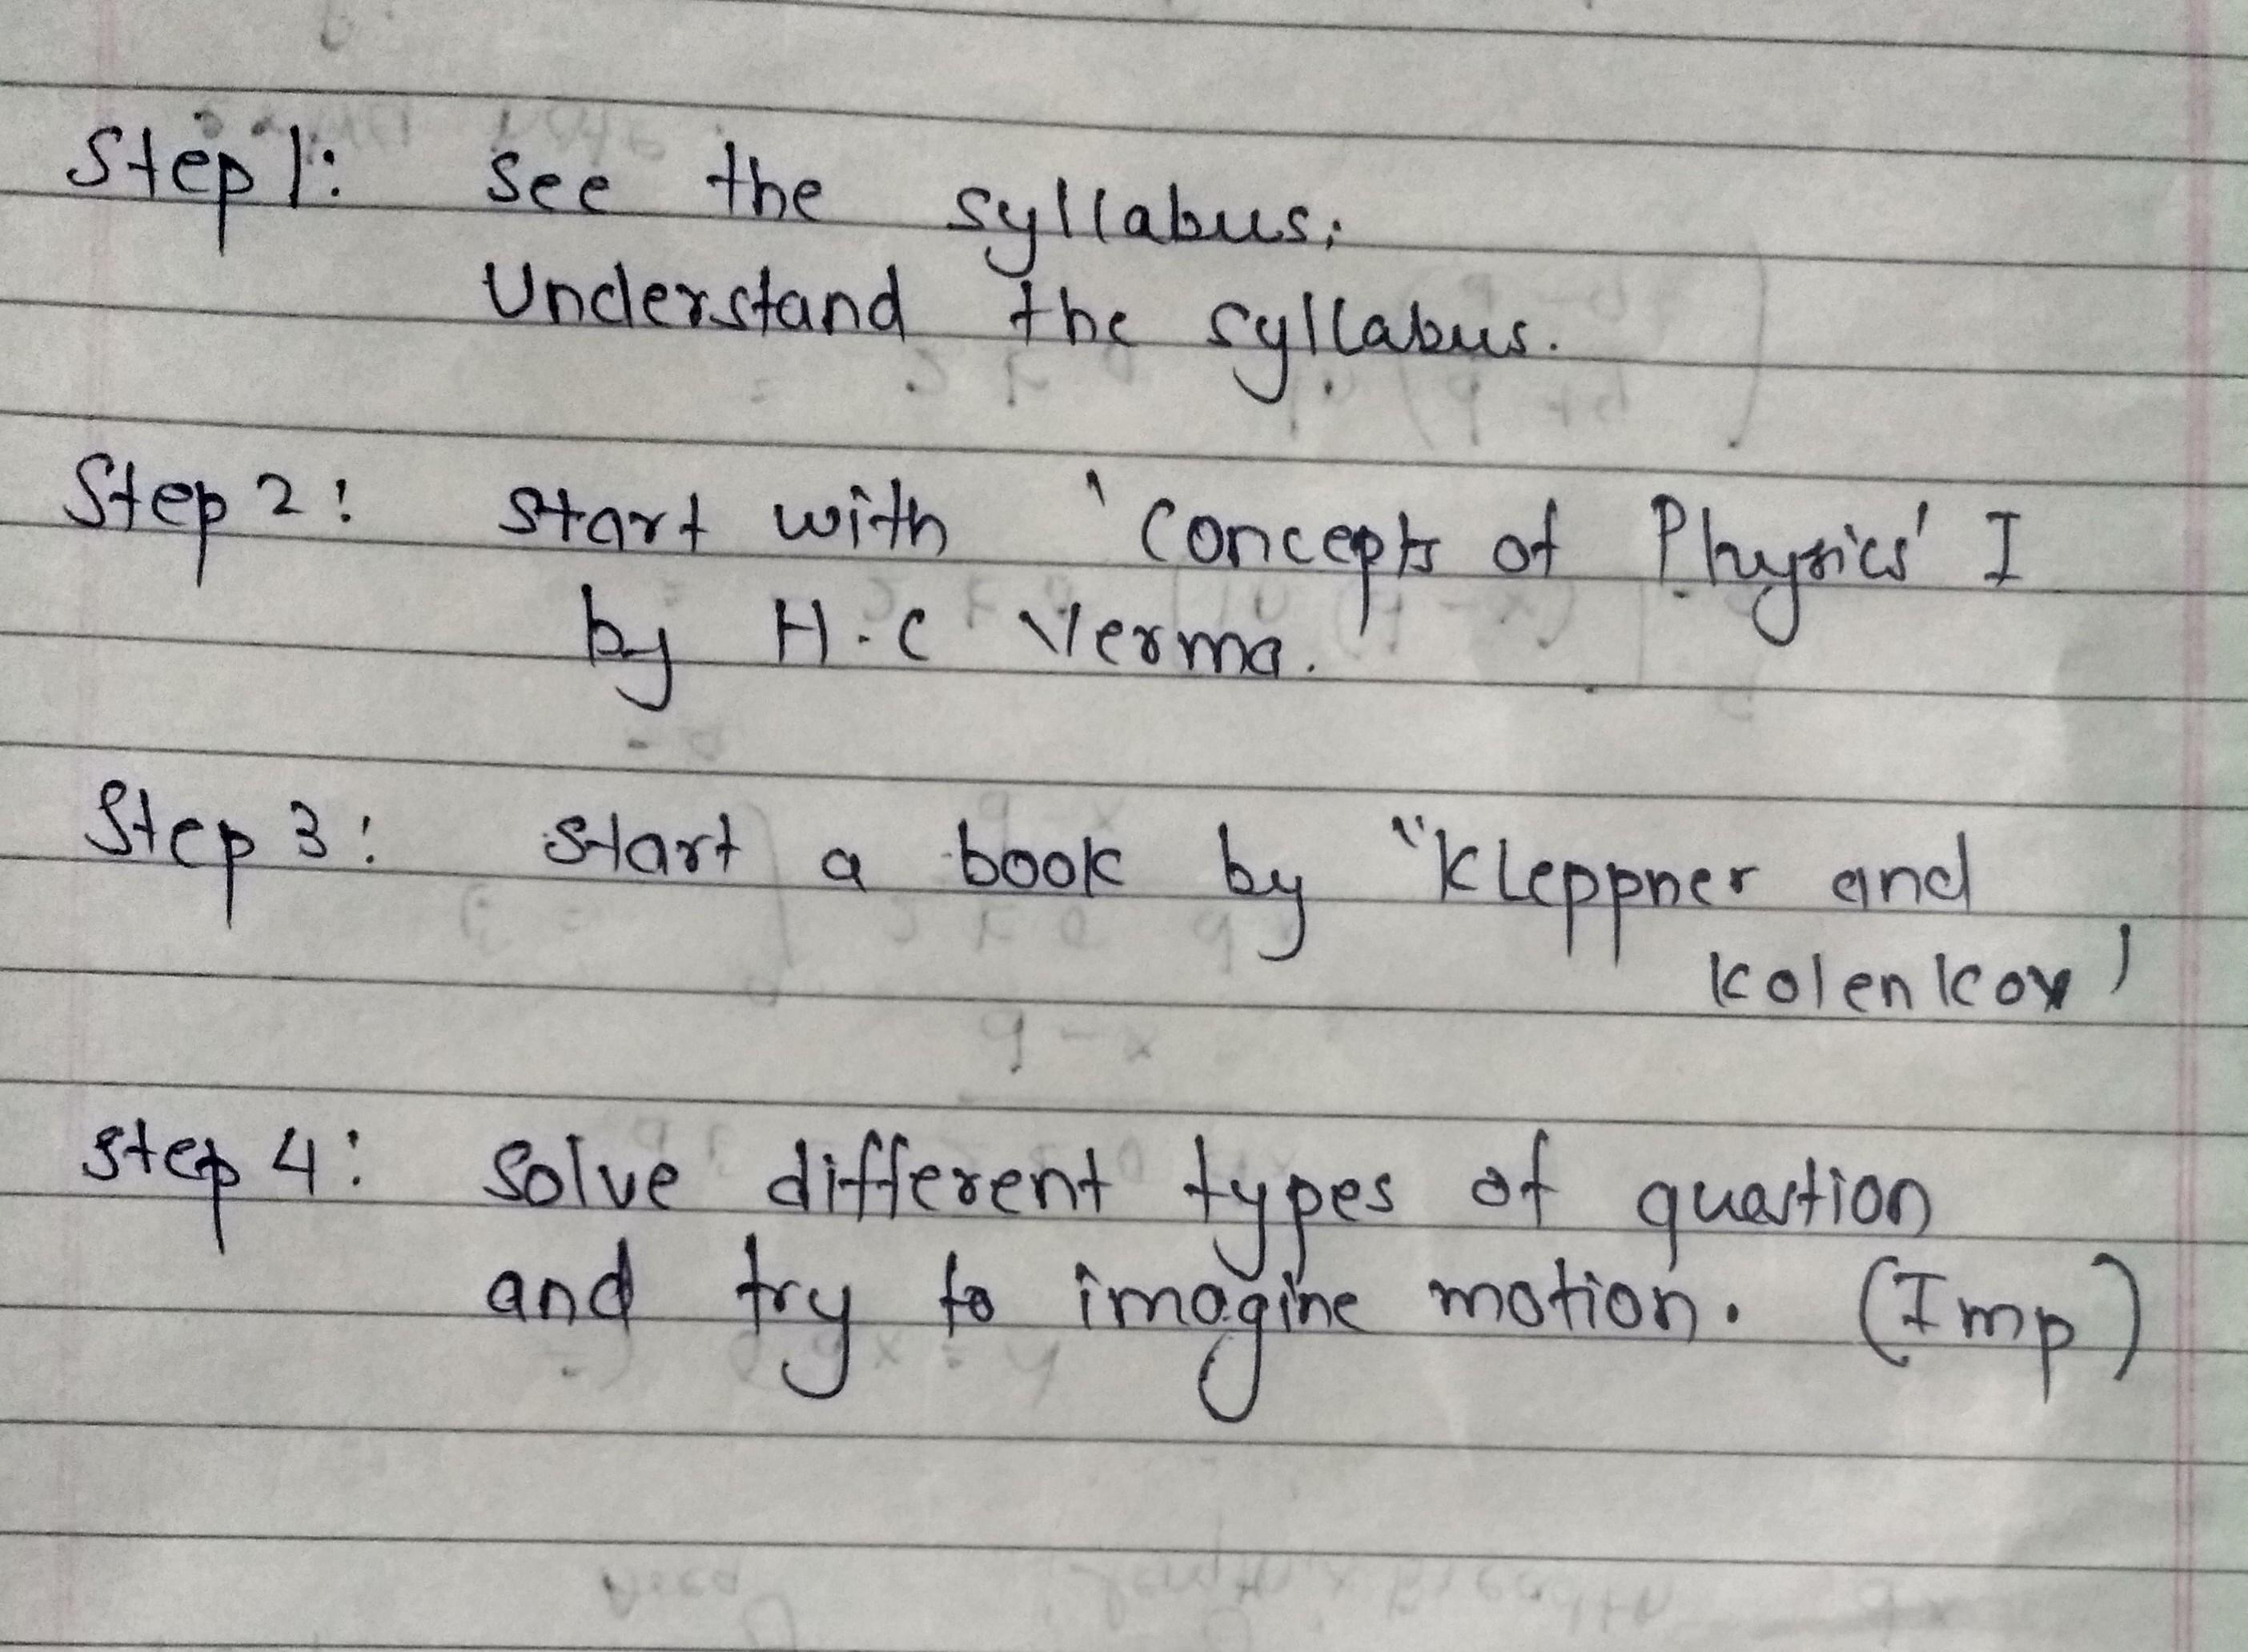 Step 1: See the syllabus.
Understand the syllabus.
Step 2: Start with 'Concepts of Physics' I
by H.C Verma.
Step 3: Start a book by "Kleppner and
Kolenkow'
Step 4: Solve different types of question
and try to imagine motion. (Imp)